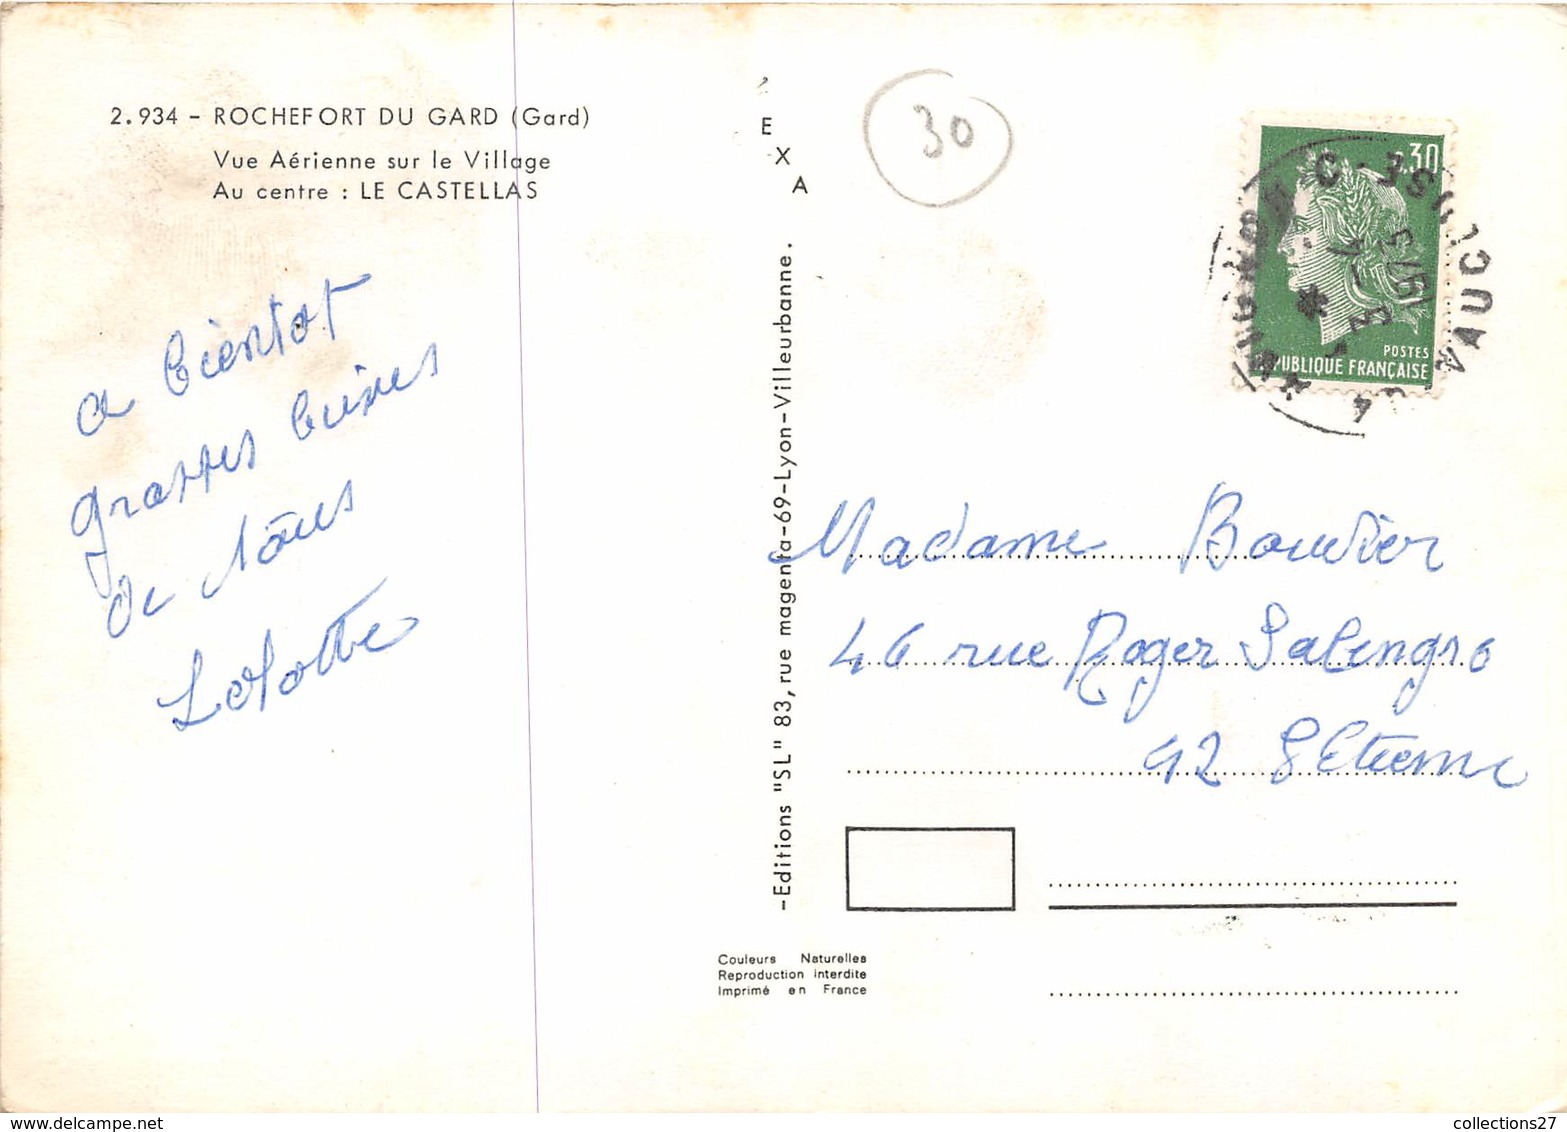 2.934 - ROCHEFORT DU GARD (Gard)
Vue Aérienne sur le Village
Au centre : LE CASTELLAS
a bientot
grosses bises
de nous
Lolotte
E
X
A
-Editions "SL" 83, rue magenta-69-Lyon-Villeurbanne.
Couleurs Naturelles
Reproduction interdite
Imprimé en France
30
.30
POSTES
PUBLIQUE FRANÇAISE
3 - 4
1973
VAUC
Madame Bouvier
46 rue Roger Salengro
42 S Etienne
delcampe.net
collections27